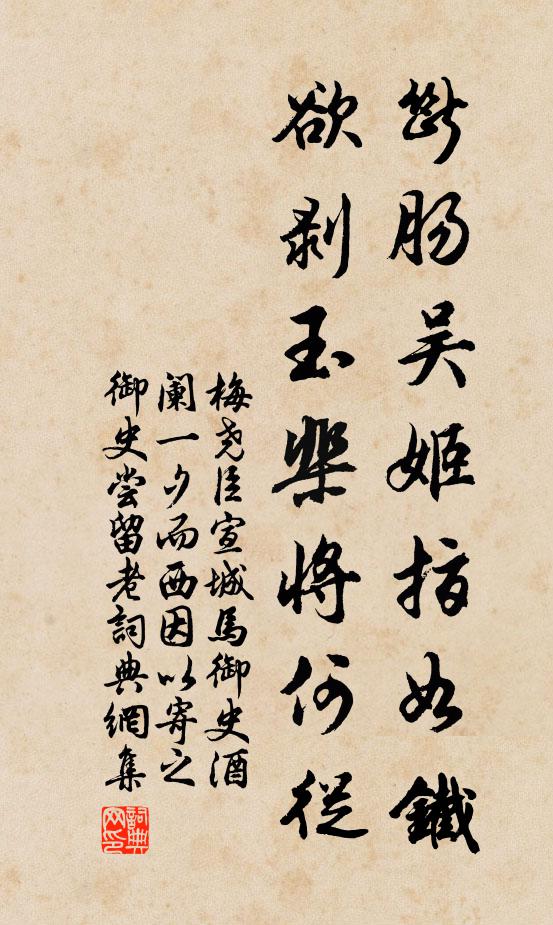 斷腸吳姬指如鐵
欲剝玉栗將何從
梅堯臣宣城馬御史酒
闌一夕而西因以寄之
御史嘗留老詞典網集
詞典網印